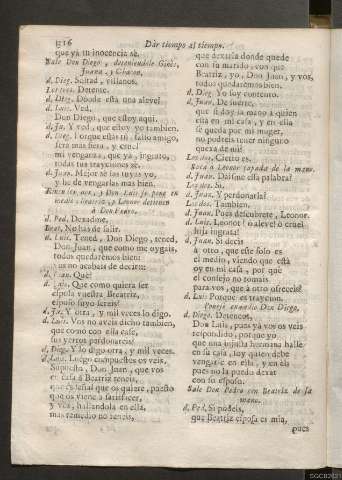 316 Dàr tiempo al tiempo.
que yà tu inocencia sè.
Sale Don Diego, deteniendole Ginès,
Juana, y Chacon.
d. Dieg. Soltad, villanos.
Los tres. Detente.
d. Dieg. Dònde està una aleve?
d. Luis. Ved,
Don Diego, que estoy aqui.
d. Ju. Y ved, que estoy yo tambien.
d. Dieg. Porque estàs tu, falso amigo,
serà mas fiera, y cruel
mi venganza, que yà, ingrato,
todas tus trayciones sè.
d. Juan. Mejor sè las tuyas yo,
y he de vengarlas mas bien.
Riñen los dos, y Don Luis se pone en
medio, y Leonor detienen
à Don Pedro.
d. Ped. Dexadme.
Beat. No has de salir.
d. Luis. Tened, Don Diego, tened,
Don Juan, que como me oygais,
todos quedarèmos bien:
no acabais de decir
d. Juan. Què?
d. Luis. Que como quiera ser
esposa vuestra Beatriz,
esposo suyo sereis?
d. Ju. Y otra, y mil veces lo digo.
d. Luis. Vos no aveis dicho tambien,
que como con ella case,
sus yerros perdonareis?
d. Dieg. Y lo digo otra, y mil veces.
d. Luis. Luego compuestos os veis,
Supuesto, Don Juan, que vos
en casa à Beatriz teneis,
es señal que os quiere, puesto
que os viene à satisfacer,
y vos, hallandola en ella,
mas remedio no teneis,
que dexarla donde quede
con su marido, con que
Beatriz, yo, Don Juan, y vos,
todos quedarèmos bien.
d. Dieg. Yo soy contento.
d. Juan. De suerte,
que si doy la mano à quien
està en mi casa, y en ella
se queda por mi muger,
no podreis tener ninguno
quexa de mi?
Los dos. Cierto es.
Saca à Leonor tapada de la mano.
d. Juan. Daisme essa palabra?
Los dos. Si.
d. Juan. Y perdonarla?
Los dos. Tambien.
d. Juan. Pues descubrete, Leonor.
d. Luis. Leonor! ò aleve! ò cruel
hija ingrata!
d. Juan. Si decis
à otro, que esse solo es
el medio, viendo que està
oy en mi casa, por què
el consejo no tomais
para vos, que à otro ofreceis?
d. Luis. Porque es traycion.
Ponese en medio Don Diego.
d. Diego. Deteneos,
Don Luis, pues yà vos os veis
respondido, por quien
que una injusta hermana halle
en su casa, oy quien debe
vengarse en ella, y en èl:
pues no la puedo devar
con su esposo.
Sale Don Pedro con Beatriz de la
mano.
d. Ped. Si podeis,
que Beatriz esposa es mia,
pues